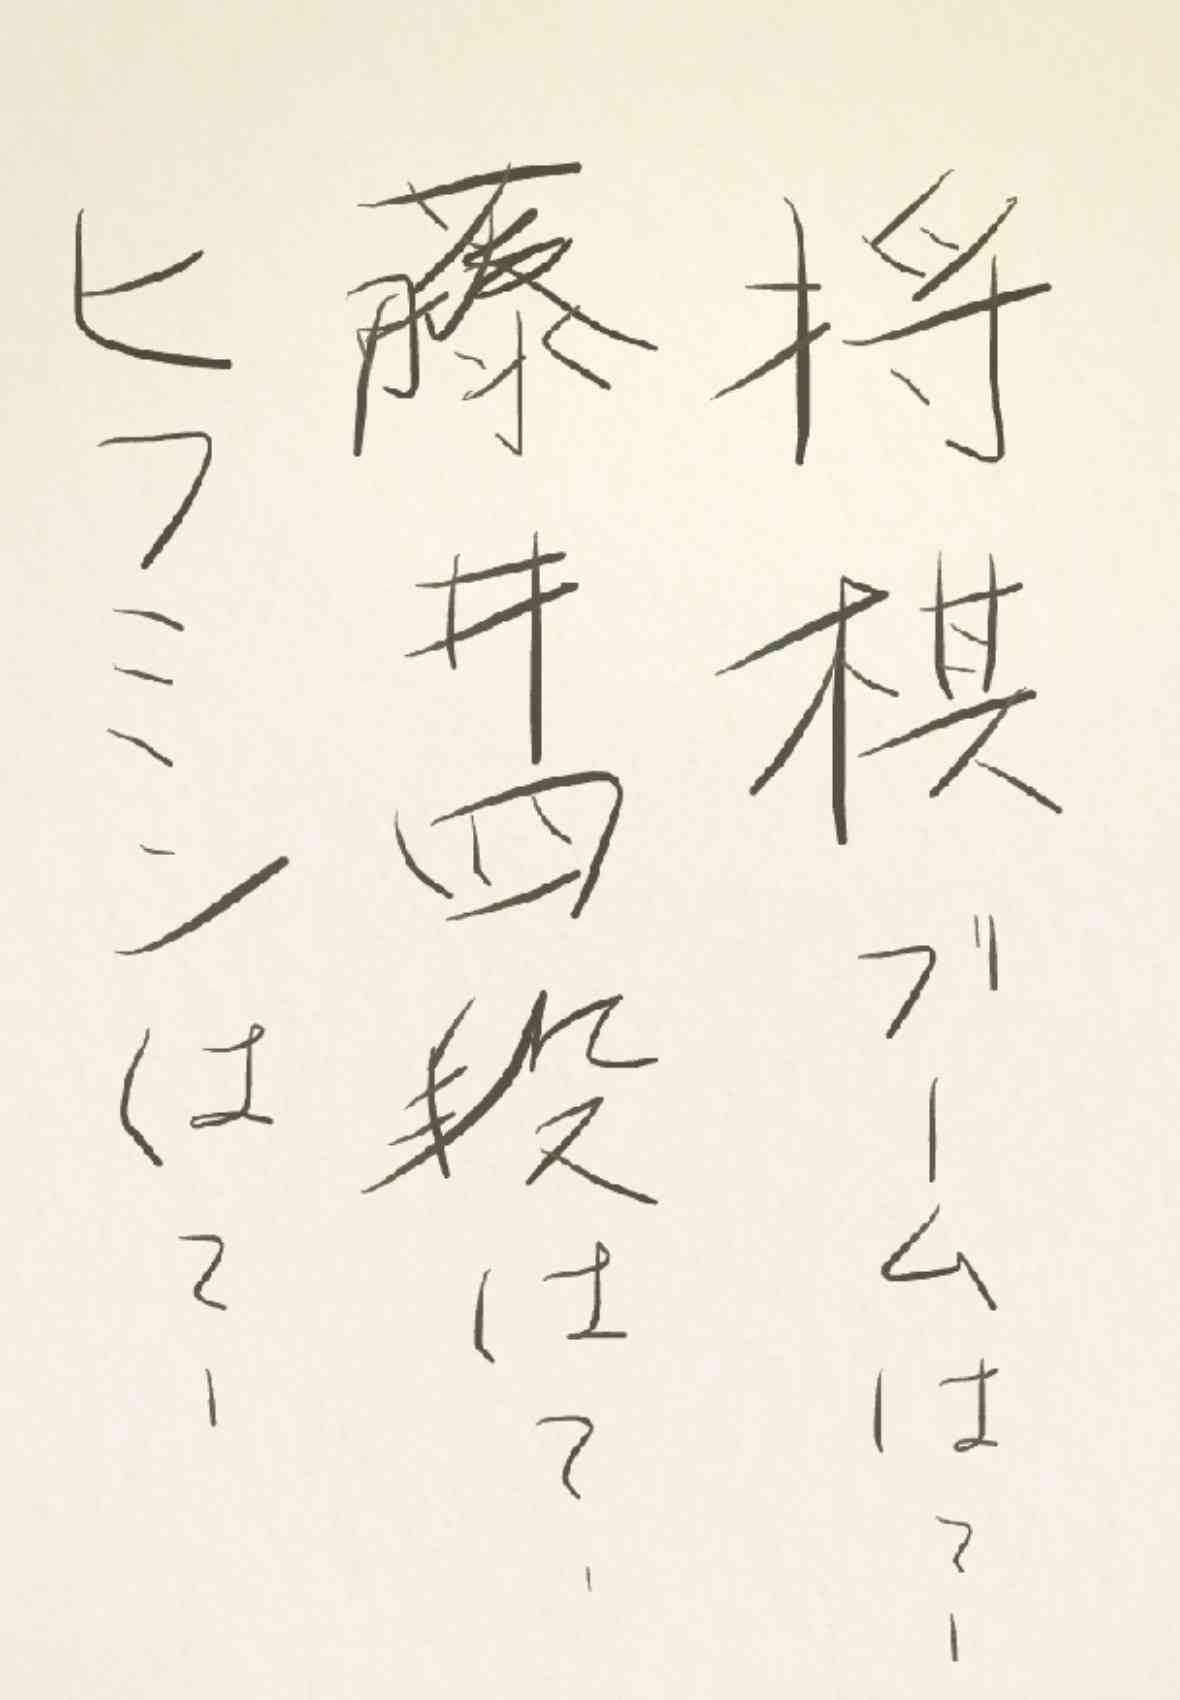 将棋ブームはてー
藤井四段はてー
ヒフミンはてー